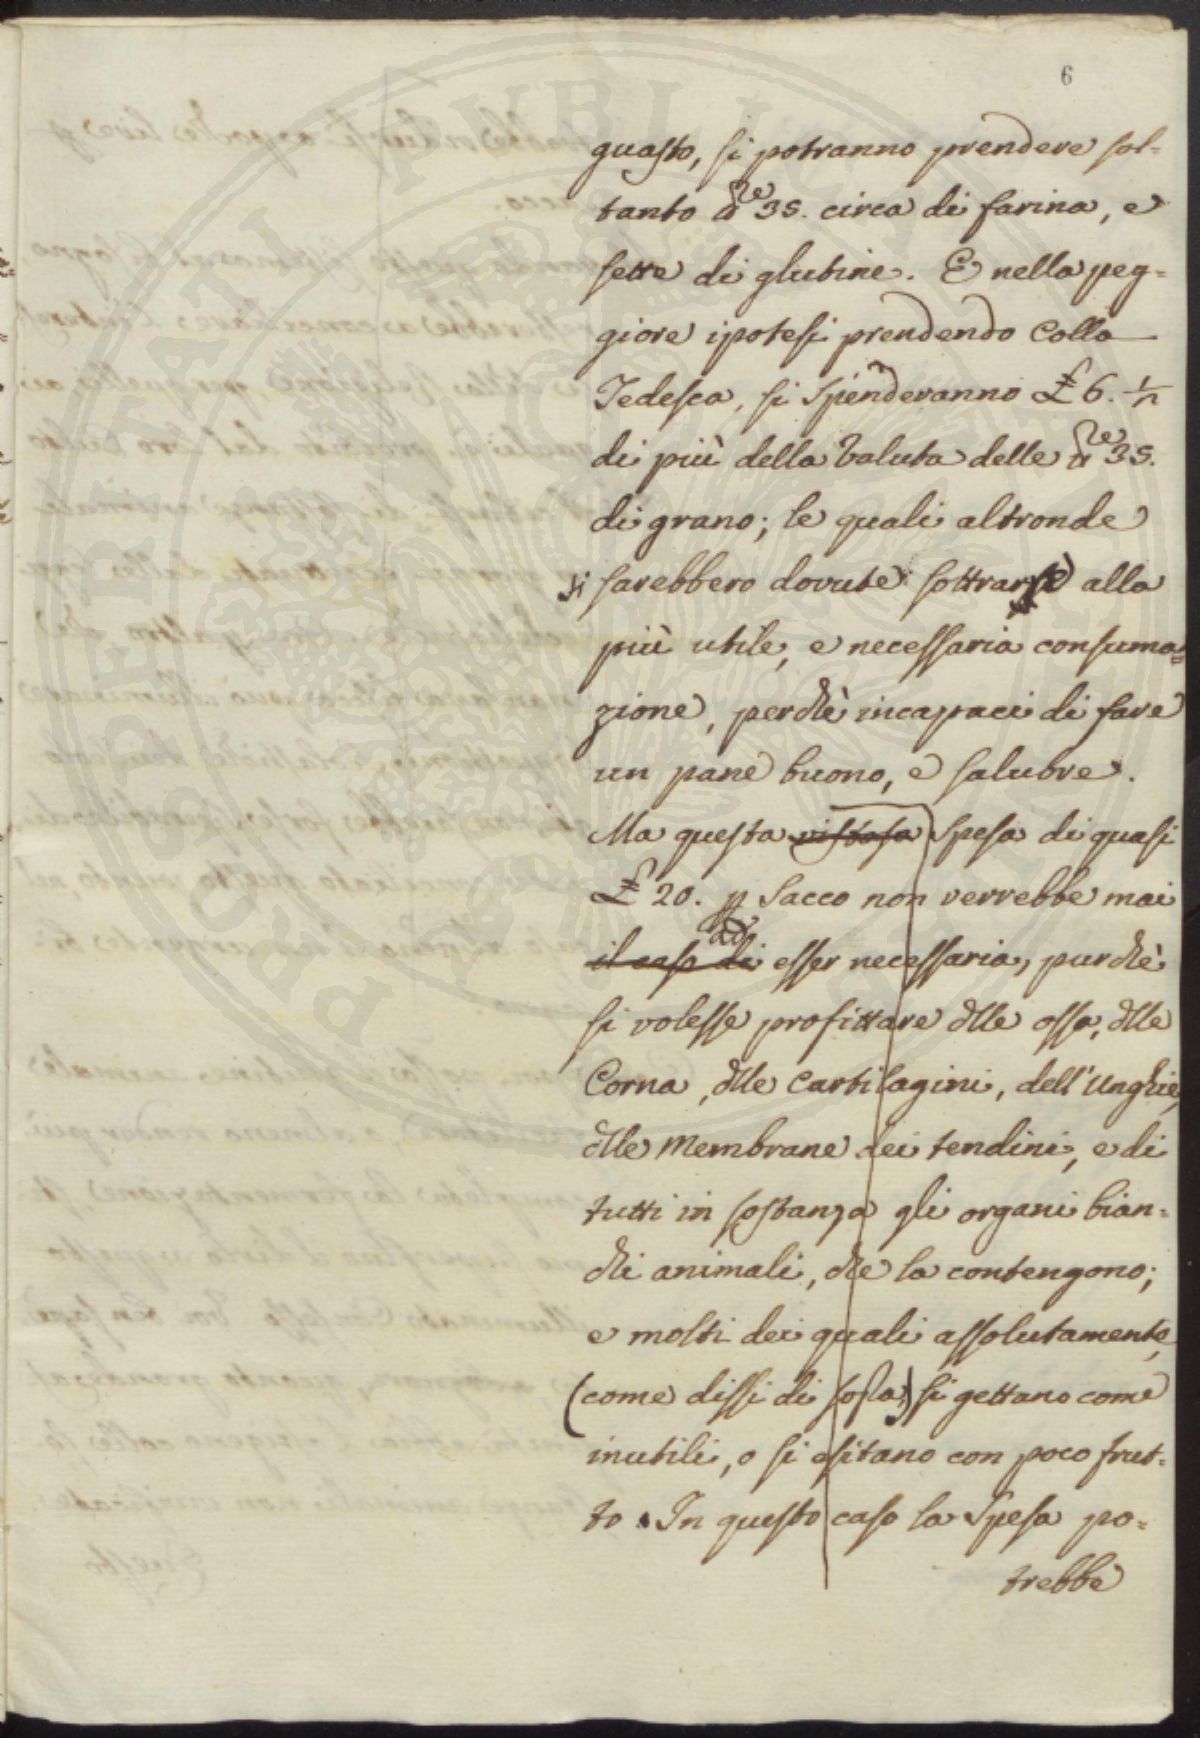 6
guasto, si potranno prendere sol-
tanto 35. circa di farina, e
sette di glutine. E nella peg-
giore ipotesi prendendo Colla
Tedesca, si Spenderanno £ 6.
di più della Valuta delle 35.
di grano; le quali altronde
si sarebbero dovute sottrarre alla
più utile, e necessaria consuma-
zione, perchè incapaci di fare
un pane buono, e salubre.
Ma questa vistosa Spesa di quasi
£ 20. p Sacco non verrebbe mai
ad
il caso di esser necessaria, purchè
si volesse profittare dlle ossa, dlle
Corna, dlle Cartilagini, dell'Unghie,
dlle Membrane dei tendini, e di
tutti in sostanza gli organi bian-
chi animali, che la contengono;
e molti dei quali assolutamente,
(come dissi di sopra,) si gettano come
inutili, o si esitano con poco frut-
to. In questo caso la Spesa po-
trebbe